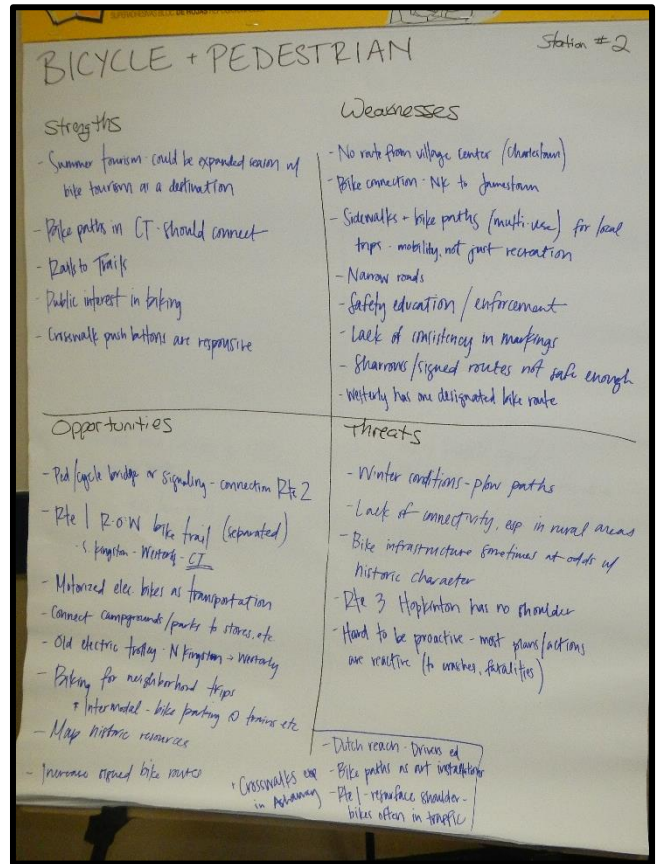 BICYCLE + PEDESTRIAN
Station #2
Strengths
- Summer tourism - could be expanded season w/
bike tourism as a destination
- Bike paths in CT - should connect
- Rails to Trails
- Public interest in biking
- Crosswalk push buttons are responsive
Weaknesses
- No route from village center (Charlestown)
- Bike connection - NK to Jamestown
- Sidewalks + bike paths (multi-use) for local
trips - mobility, not just recreation
- Narrow roads
- Safety education / enforcement
- Lack of consistency in markings
- Sharrows/signed routes not safe enough
- Westerly has one designated bike route
Opportunities
- Ped/cycle bridge or signaling - connection Rte 2
- Rte 1 R.O.W bike trail (separated)
- S. Kingston - Westerly - CT
- Motorized elec. bikes as transportation
- Connect campgrounds/parks to stores, etc.
- Old electric trolley - N Kingston → Westerly
- Biking for neighborhood trips
* Intermodal - bike parking @ trains etc
- Map historic resources
- Increase signed bike routes
Threats
- Winter conditions - plow paths
- Lack of connectivity, esp in rural areas
- Bike infrastructure sometimes at odds w/
historic character
- Rte 3 Hopkinton has no shoulder
- Hard to be proactive - most plans/actions
are reactive (to crashes, fatalities)
- Dutch reach - Drivers ed
- Bike paths as art installations
- Rte 1 - resurface shoulder -
bikes often in traffic
* Crosswalks esp
in Ashaway